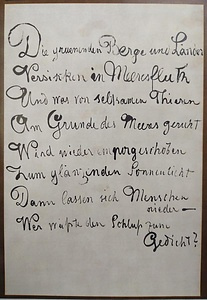 Die Berge und
Versinken in Meeresfluth
Und was von seltsamen Thieren
Am Grunde des Meeres geruht
Wird wieder emporgeschoben
Zum glänzenden Sonnenlicht
Dann lassen sich Menschen
nieder —
Wer wüßte den Schluß zum
Gedicht?